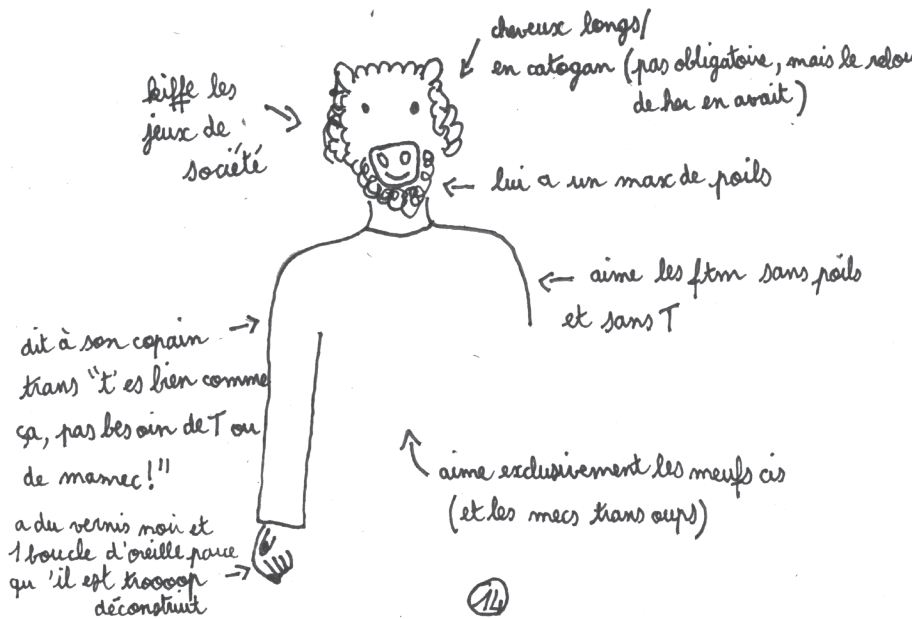 cheveux longs/
en catogan (pas obligatoire, mais le relou
de her en avait)
kiffe les
jeux de
société
lui a un max de poils
aime les ftm sans poils
et sans T
dit à son copain
trans "t'es bien comme
ça, pas besoin de T ou
de mamec!"
aime exclusivement les meufs cis
(et les mecs trans oups)
a du vernis noir et
1 boucle d'oreille parce
qu'il est troooop
déconstruit
14